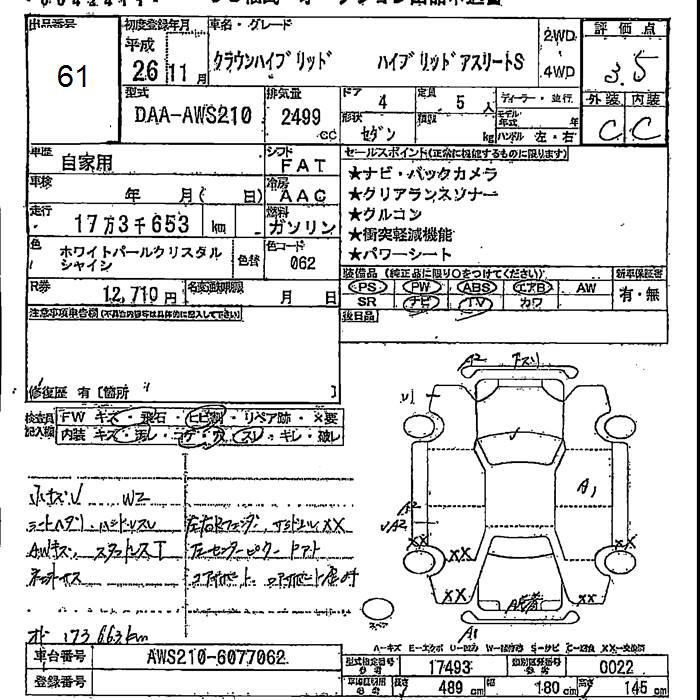 出品番号
61
初度登録年月
平成
26 11 月
車名・グレード
クラウンハイブリッド ハイブリッドアスリートS
2WD
4WD
評価点
3.5
外装 内装
C C
型式
DAA-AWS210
排気量
2499
cc
ドア 4
定員 5 人
形状 セダン
積載 kg
ディーラー・並行
モデル年式 年
ハンドル 左・右
車歴
自家用
シフト
FAT
車検
年 月( 日)
冷房
AAC
走行
17万3千653 km
燃料
ガソリン
色
ホワイトパールクリスタル
シャイン
色替
色コード
062
R券
12,710 円
名変期限
月 日
セールスポイント(正常に機能するものに限ります)
★ナビ・バックカメラ
★クリアランスソナー
★クルコン
★衝突軽減機能
★パワーシート
装備品(純正品に限り○をつけてください)
新車保証書
PS PW ABS エアB AW
有・無
SR ナビ TV カワ
後日品
注意事項申告欄(不具合内容等は具体的に記入して下さい)
修復歴 有〔箇所 〕
検査員
記入欄
FW キズ・飛石・ヒビ割・リペア跡・×要
内装 キズ・汚レ・コゲ・穴・スレ・キレ・破レ
小キズU W2
AWキズ スタットレスT
173663km
A2
U1
A1
A2
UA2
XX
XX
XX
XX
A1
A-キズ E-エクボ U-凹み W-波打ち S-サビ C-腐食 XX-交換済
車台番号
AWS210-6077062
登録番号
型式指定番号
17493
類別区分番号
0022
長さ 489 cm
幅 180 cm
高さ 145 cm